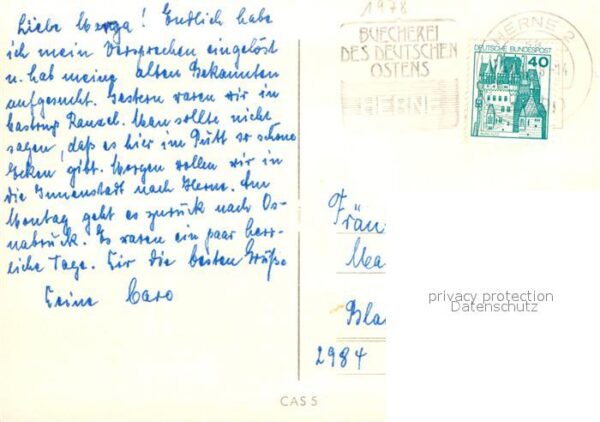 Liebe Marga! Endlich habe
ich mein Versprechen eingelöst
u. hab meine alten Bekannten
aufgesucht. Gestern waren wir in
Castrop Rauxel. Man sollte nicht
sagen, daß es hier im Pütt so schöne
Ecken gibt. Morgen wollen wir in
die Innenstadt nach Herne. Am
Montag geht es zurück nach Os-
nabrück. Es waren ein paar herr-
liche Tage. Dir die besten Grüße
Deine Caro
1978
BUECHEREI
DES DEUTSCHEN
OSTENS
HERNE
HERNE 2
DEUTSCHE BUNDESPOST
40
Fräu
Ma
Bla
2984
privacy protection
Datenschutz
CAS 5